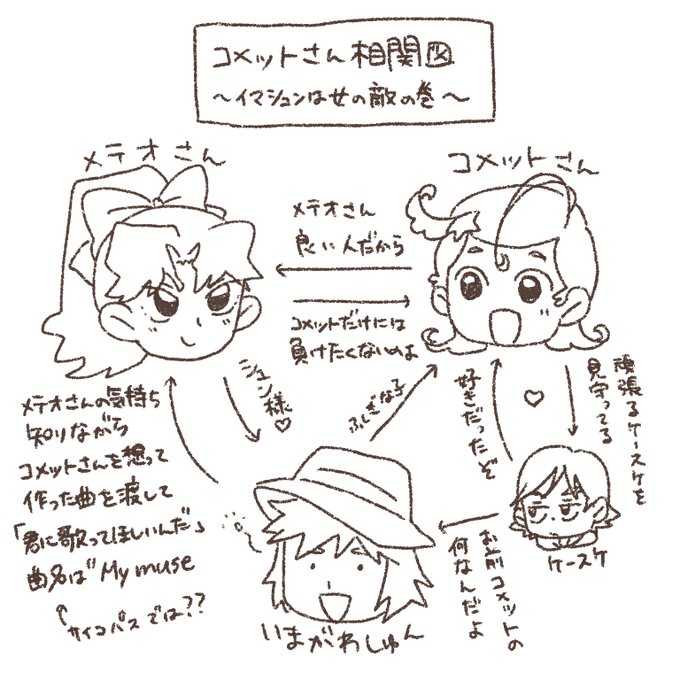 コメットさん相関図
～イマシュンは女の敵の巻～
メテオさん
コメットさん
メテオさん
良い人だから
コメットだけには
負けたくないのよ
ジュン様♡
ふしぎな子
好きだったぞ
♡
頑張るケースケを
見守ってる
メテオさんの気持ち
知りながら
コメットさんを想って
作った曲を渡して
「君に歌ってほしいんだ」
曲名は"My muse
↑サイコパスでは??
いまがわしゅん
お前コメットの
何なんだよ
ケースケ